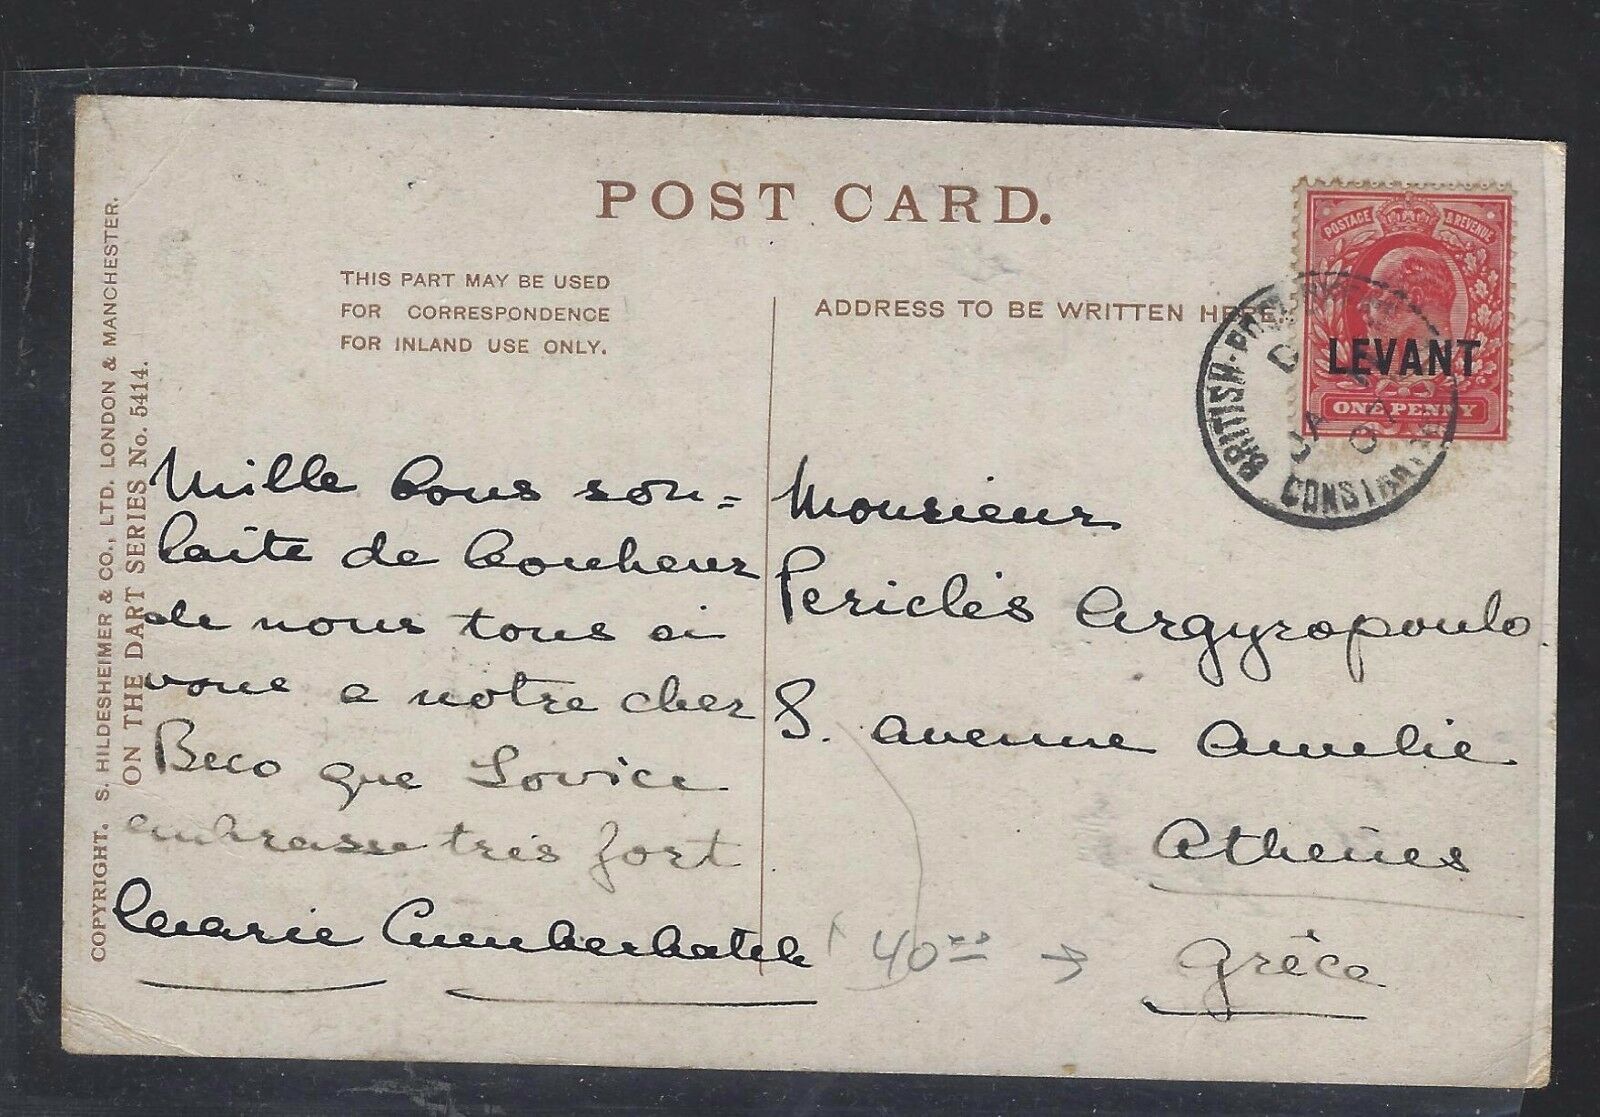 POST CARD.
THIS PART MAY BE USED
FOR CORRESPONDENCE
FOR INLAND USE ONLY.
ADDRESS TO BE WRITTEN HERE
POSTAGE & REVENUE
LEVANT
ONE PENNY
BRITISH-POST
CONSTANT
COPYRIGHT. S. HILDESHEIMER & CO., LTD. LONDON & MANCHESTER.
ON THE DART SERIES No. 5414.
Mille bons sou=
haits de bonheur
de nous tous ai
a notre cher
Beco que Lovice
embrasse très fort
Marie Cumberbatch
Monsieur
Periclès Argyropoulo
8. avenue Amelie
Athènes
Grêce
40